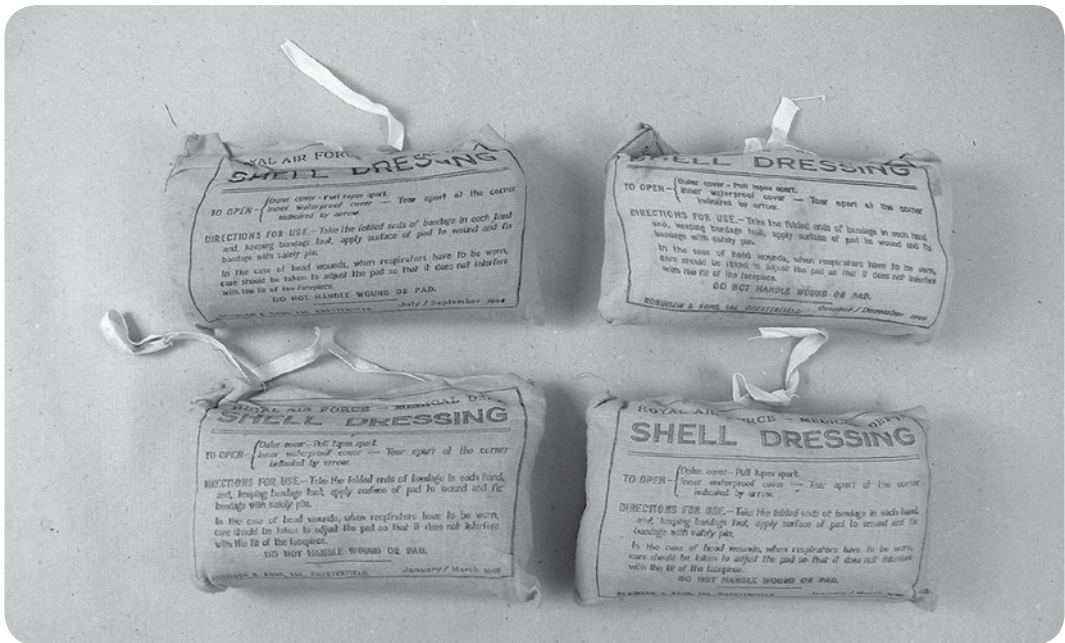 ROYAL AIR FORCE
SHELL DRESSING
TO OPEN—{Outer cover—Pull tapes apart.
Inner waterproof cover — Tear apart at the corner
indicated by arrow.
DIRECTIONS FOR USE.—Take the folded ends of bandage in each hand
and, keeping bandage taut, apply surface of pad to wound and fix
bandage with safety pin.
In the case of head wounds, when respirators have to be worn,
care should be taken to adjust the pad so that it does not interfere
with the fit of the facepiece.
DO NOT HANDLE WOUND OR PAD.
July/September 1944
ROBINSON & SONS, Ltd. CHESTERFIELD
SHELL DRESSING
TO OPEN—{Outer cover—Pull tapes apart.
Inner waterproof cover — Tear apart at the corner
indicated by arrow.
DIRECTIONS FOR USE.—Take the folded ends of bandage in each hand
and, keeping bandage taut, apply surface of pad to wound and fix
bandage with safety pin.
In the case of head wounds, when respirators have to be worn,
care should be taken to adjust the pad so that it does not interfere
with the fit of the facepiece.
DO NOT HANDLE WOUND OR PAD.
ROBINSON & SONS, Ltd. CHESTERFIELD October/December
ROYAL AIR FORCE — MEDICAL DEPT
SHELL DRESSING
TO OPEN—{Outer cover—Pull tapes apart.
Inner waterproof cover — Tear apart at the corner
indicated by arrow.
DIRECTIONS FOR USE.—Take the folded ends of bandage in each hand,
and, keeping bandage taut, apply surface of pad to wound and fix
bandage with safety pin.
In the case of head wounds, when respirators have to be worn,
care should be taken to adjust the pad so that it does not interfere
with the fit of the facepiece.
DO NOT HANDLE WOUND OR PAD.
January/March
ROBINSON & SONS, Ltd. CHESTERFIELD
ROYAL AIR FORCE — MEDICAL DEPT
SHELL DRESSING
TO OPEN—{Outer cover—Pull tapes apart.
Inner waterproof cover — Tear apart at the corner
indicated by arrow.
DIRECTIONS FOR USE.—Take the folded ends of bandage in each hand
and, keeping bandage taut, apply surface of pad to wound and fix
bandage with safety pin.
In the case of head wounds, when respirators have to be worn,
care should be taken to adjust the pad so that it does not interfere
with the fit of the facepiece.
DO NOT HANDLE WOUND OR PAD.
ROBINSON & SONS, Ltd. CHESTERFIELD January/March